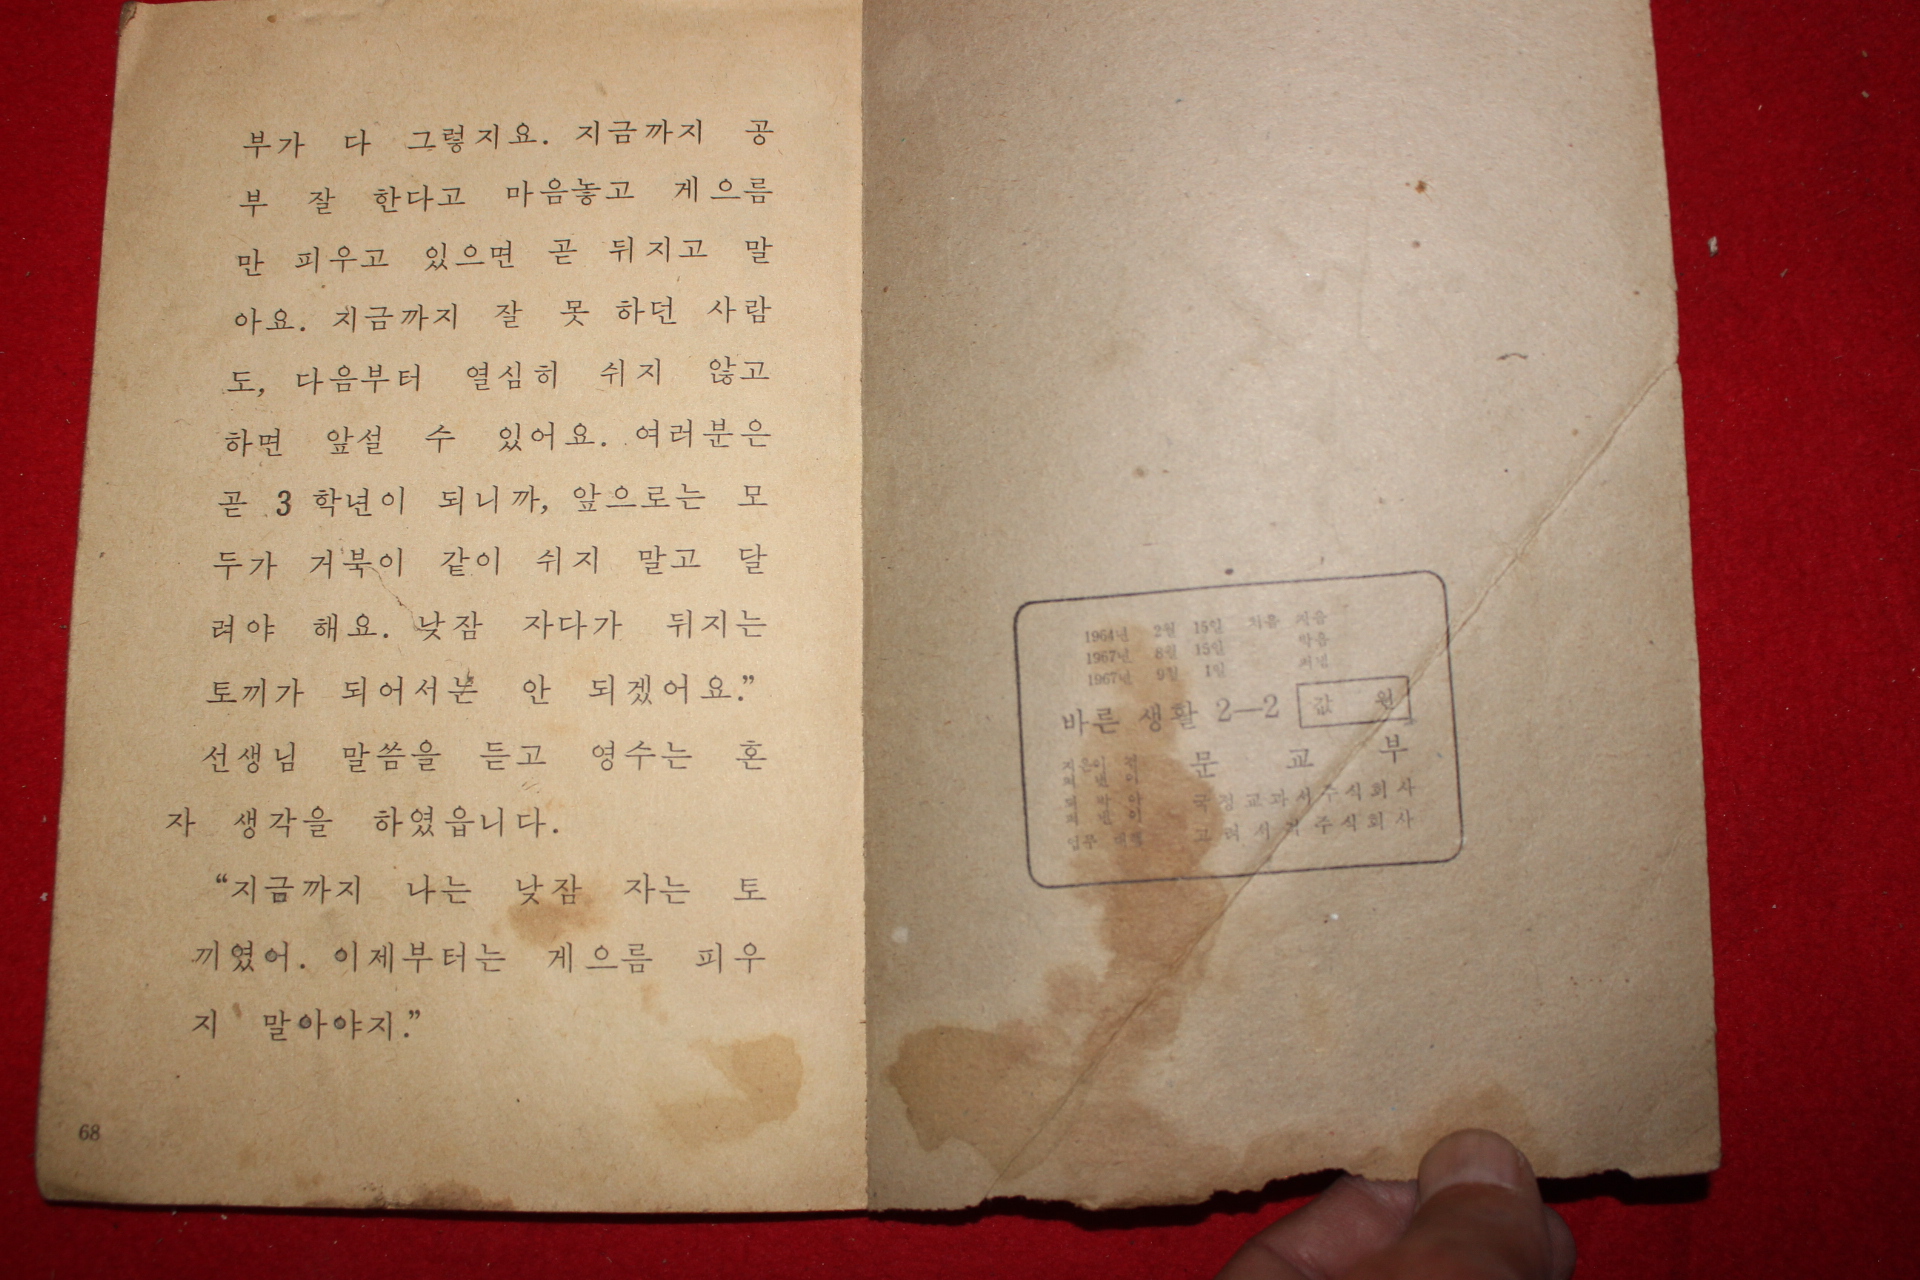 부가 다 그렇지요. 지금까지 공
부 잘 한다고 마음놓고 게으름
만 피우고 있으면 곧 뒤지고 말
아요. 지금까지 잘 못 하던 사람
도, 다음부터 열심히 쉬지 않고
하면 앞설 수 있어요. 여러분은
곧 3 학년이 되니까, 앞으로는 모
두가 거북이 같이 쉬지 말고 달
려야 해요. 낮잠 자다가 뒤지는
토끼가 되어서는 안 되겠어요.”
선생님 말씀을 듣고 영수는 혼
자 생각을 하였읍니다.
“지금까지 나는 낮잠 자는 토
끼였어. 이제부터는 게으름 피우
지 말아야지.”
68
1964년 2월 15일 처음 지음
1967년 8월 15일 박음
1967년 9월 1일 펴냄
바른 생활 2—2 값 원
지은이 문교부
국정교과서주식회사
고려서적주식회사